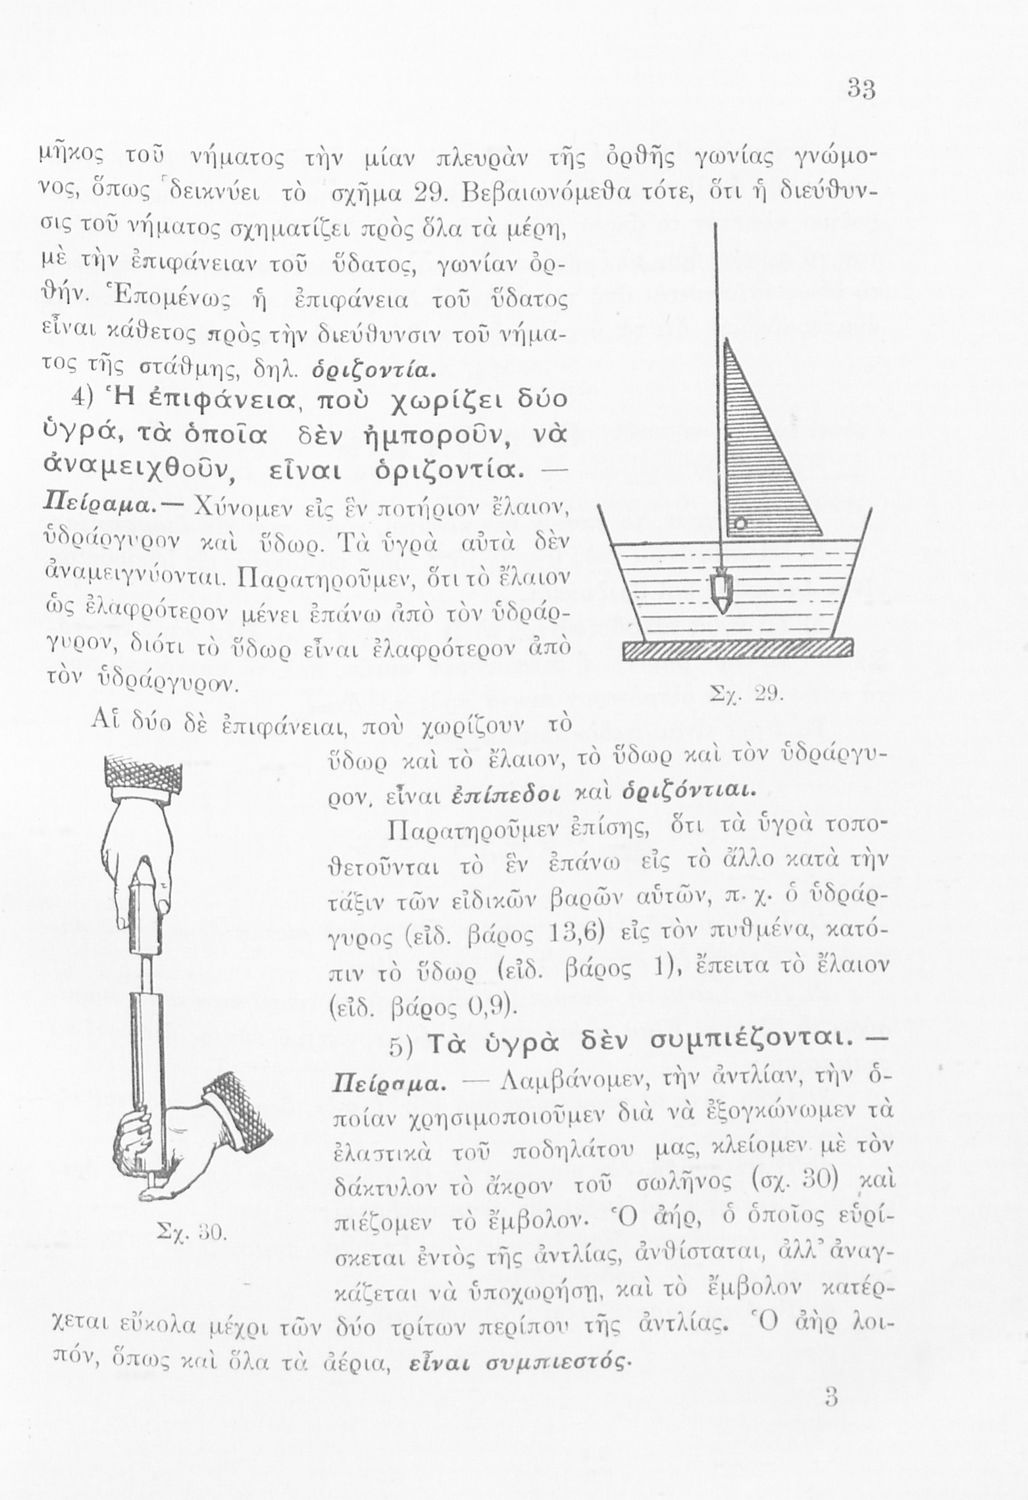 33
μῆκος τοῦ νήματος τὴν μίαν πλευρὰν τῆς ὀρθῆς γωνίας γνώμο-
νος, ὅπως δεικνύει τὸ σχῆμα 29. Βεβαιωνόμεθα τότε, ὅτι ἡ διεύθυν-
σις τοῦ νήματος σχηματίζει πρὸς ὅλα τὰ μέρη,
μὲ τὴν ἐπιφάνειαν τοῦ ὕδατος, γωνίαν ὀρ-
θήν. Ἑπομένως ἡ ἐπιφάνεια τοῦ ὕδατος
εἶναι κάθετος πρὸς τὴν διεύθυνσιν τοῦ νήμα-
τος τῆς στάθμης, δηλ. ὁριζοντία.
4) Ἡ ἐπιφάνεια, ποὺ χωρίζει δύο
ὑγρά, τὰ ὁποῖα δὲν ἠμποροῦν, νὰ
ἀναμειχθοῦν, εἶναι ὁριζοντία. —
Πείραμα.— Χύνομεν εἰς ἓν ποτήριον ἔλαιον,
ὑδράργυρον καὶ ὕδωρ. Τὰ ὑγρὰ αὐτὰ δὲν
ἀναμειγνύονται. Παρατηροῦμεν, ὅτι τὸ ἔλαιον
ὡς ἐλαφρότερον μένει ἐπάνω ἀπὸ τὸν ὑδράρ-
γυρον, διότι τὸ ὕδωρ εἶναι ἐλαφρότερον ἀπὸ
τὸν ὑδράργυρον.
Σχ. 29.
Αἱ δύο δὲ ἐπιφάνειαι, ποὺ χωρίζουν τὸ
ὕδωρ καὶ τὸ ἔλαιον, τὸ ὕδωρ καὶ τὸν ὑδράργυ-
ρον, εἶναι ἐπίπεδοι καὶ ὁριζόντιαι.
Παρατηροῦμεν ἐπίσης, ὅτι τὰ ὑγρὰ τοπο-
θετοῦνται τὸ ἓν ἐπάνω εἰς τὸ ἄλλο κατὰ τὴν
τάξιν τῶν εἰδικῶν βαρῶν αὐτῶν, π. χ. ὁ ὑδράρ-
γυρος (εἰδ. βάρος 13,6) εἰς τὸν πυθμένα, κατό-
πιν τὸ ὕδωρ (εἰδ. βάρος 1), ἔπειτα τὸ ἔλαιον
(εἰδ. βάρος 0,9).
5) Τὰ ὑγρὰ δὲν συμπιέζονται. —
Πείραμα. — Λαμβάνομεν, τὴν ἀντλίαν, τὴν ὁ-
ποίαν χρησιμοποιοῦμεν διὰ νὰ ἐξογκώνωμεν τὰ
ἐλαστικὰ τοῦ ποδηλάτου μας, κλείομεν μὲ τὸν
δάκτυλον τὸ ἄκρον τοῦ σωλῆνος (σχ. 30) καὶ
πιέζομεν τὸ ἔμβολον. Ὁ ἀήρ, ὁ ὁποῖος εὑρί-
σκεται ἐντὸς τῆς ἀντλίας, ἀνθίσταται, ἀλλ᾽ ἀναγ-
κάζεται νὰ ὑποχωρήσῃ, καὶ τὸ ἔμβολον κατέρ-
Σχ. 30.
χεται εὔκολα μέχρι τῶν δύο τρίτων περίπου τῆς ἀντλίας. Ὁ ἀὴρ λοι-
πόν, ὅπως καὶ ὅλα τὰ ἀέρια, εἶναι συμπιεστός.
3